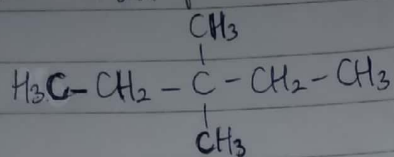 CH3
H3C-CH2-C-CH2-CH3
CH3